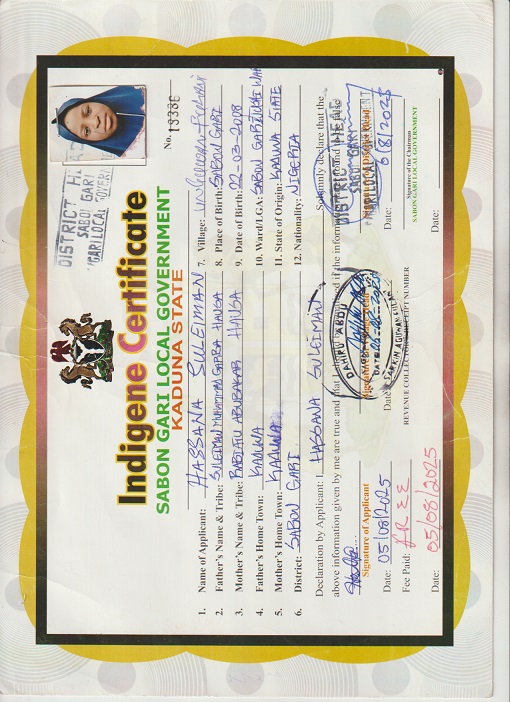 Indigene Certificate
SABON GARI LOCAL GOVERNMENT
KADUNA STATE
No. 19336
DISTRICT HE
SABON GARI
GARI LOCAL GOVER
1. Name of Applicant: HASSANA SULEIMAN
2. Father's Name & Tribe: SULEIMAN MUHAMMAD GARBA HAUSA
3. Mother's Name & Tribe: RABI'ATU ABUBAKAR HAUSA
4. Father's Home Town: KADUNA
5. Mother's Home Town: KADUNA
6. District: SABON GARI
7. Village:
8. Place of Birth: SABON GARI
9. Date of Birth: 22-03-2008
10. Ward/LGA: SABON GARI
11. State of Origin: KADUNA STATE
12. Nationality: NIGERIA
Declaration by Applicant: I HASSANA SULEIMAN Solemnly declare that the
above information given by me are true and that if the information found
Signature of Applicant
Date: 05/08/2025
Fee Paid: FREE
Date: 05/08/2025
DAHIRU ABDU
SARKIN
Date
REVENUE COLLECTOR RECEIPT NUMBER
DISTRICT HEAD
SABON GARI
Date: 6/8/2025
Signature of the Chairman
SABON GARI LOCAL GOVERNMENT
Date: